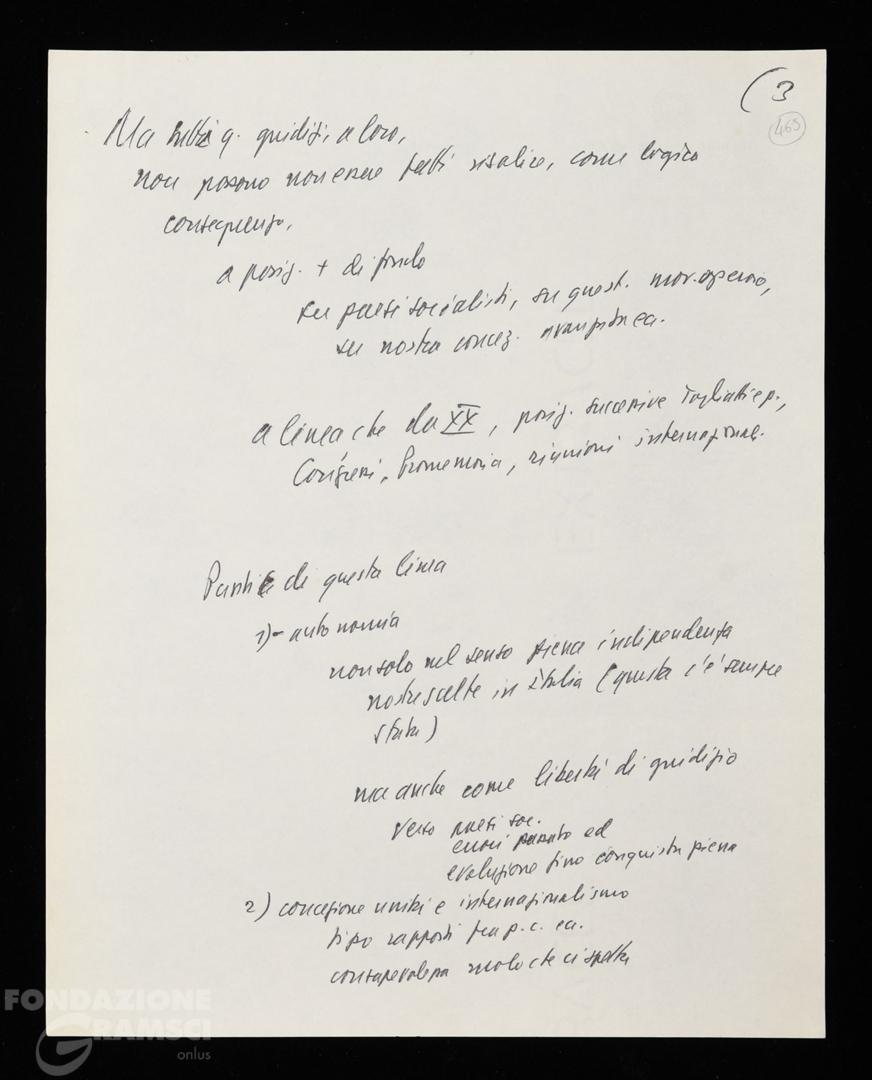 (3
465
Ma tutti q. giudizi, a loro,
non possono non essere fatti risalire, come logica
conseguenza,
a posiz. + di fondo
su paesi socialisti, su quest. mov. operaio,
su nostra concez. avanzata ecc.
a linea che da XX, posiz. successive Togliatti e p.,
Longo, Promemoria, riunioni internazional.
Punti di questa linea
1) - autonomia
non solo nel senso piena indipendenza
nostre scelte in Italia (questa c'è sempre
stata)
ma anche come libertà di giudizio
verso paesi soc.
errori passato ed
evoluzione fino conquista piena
2) concezione unità e internazionalismo
tipo rapporti fra p.c. ecc.
consapevolezza ruolo che ci spetta
FONDAZIONE
GRAMSCI
onlus